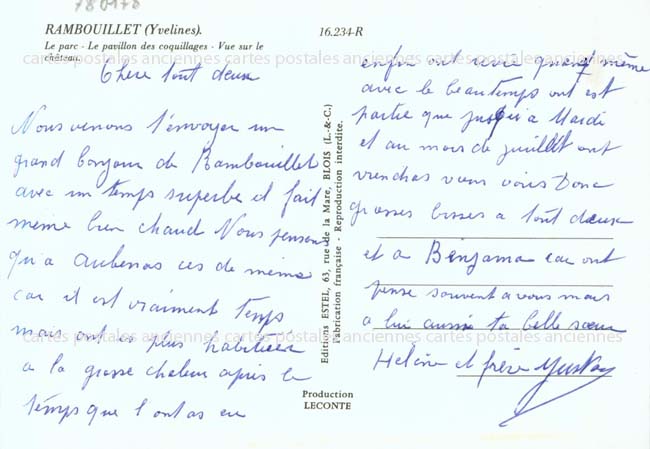 780178
RAMBOUILLET (Yvelines).
Le parc - Le pavillon des coquillages - Vue sur le
château.
16.234-R
Chere tout deux
Nous venons t'envoyer un
grand bonjour de Rambouillet
avec un temps superbe il fait
même bien chaud Nous pensons
qu'a Aubenas ces de meme
car il est vraiment temps
mais ont es plus habituées
a la grosse chaleur après le
temps que l'ont as eu
Editions ESTEL, 63, rue de la Mare, BLOIS (L.-&-C.)
Fabrication française - Reproduction interdite.
Production
LECONTE
enfin ont quand même
avec le beau temps ont est
partie que jusqu'a Mardi
et au mois de juillet ont
viendras vous voir Donc
grosses bisses a tout deux
et a Benjama car ont
pense souvent a vous mais
a lui aussi ta belle sœur
Helène et frère
cartes postales anciennes cartes postales anciennes cartes postales anciennes
cartes postales anciennes cartes postales anciennes cartes postales anciennes
cartes postales anciennes cartes postales anciennes cartes postales anciennes